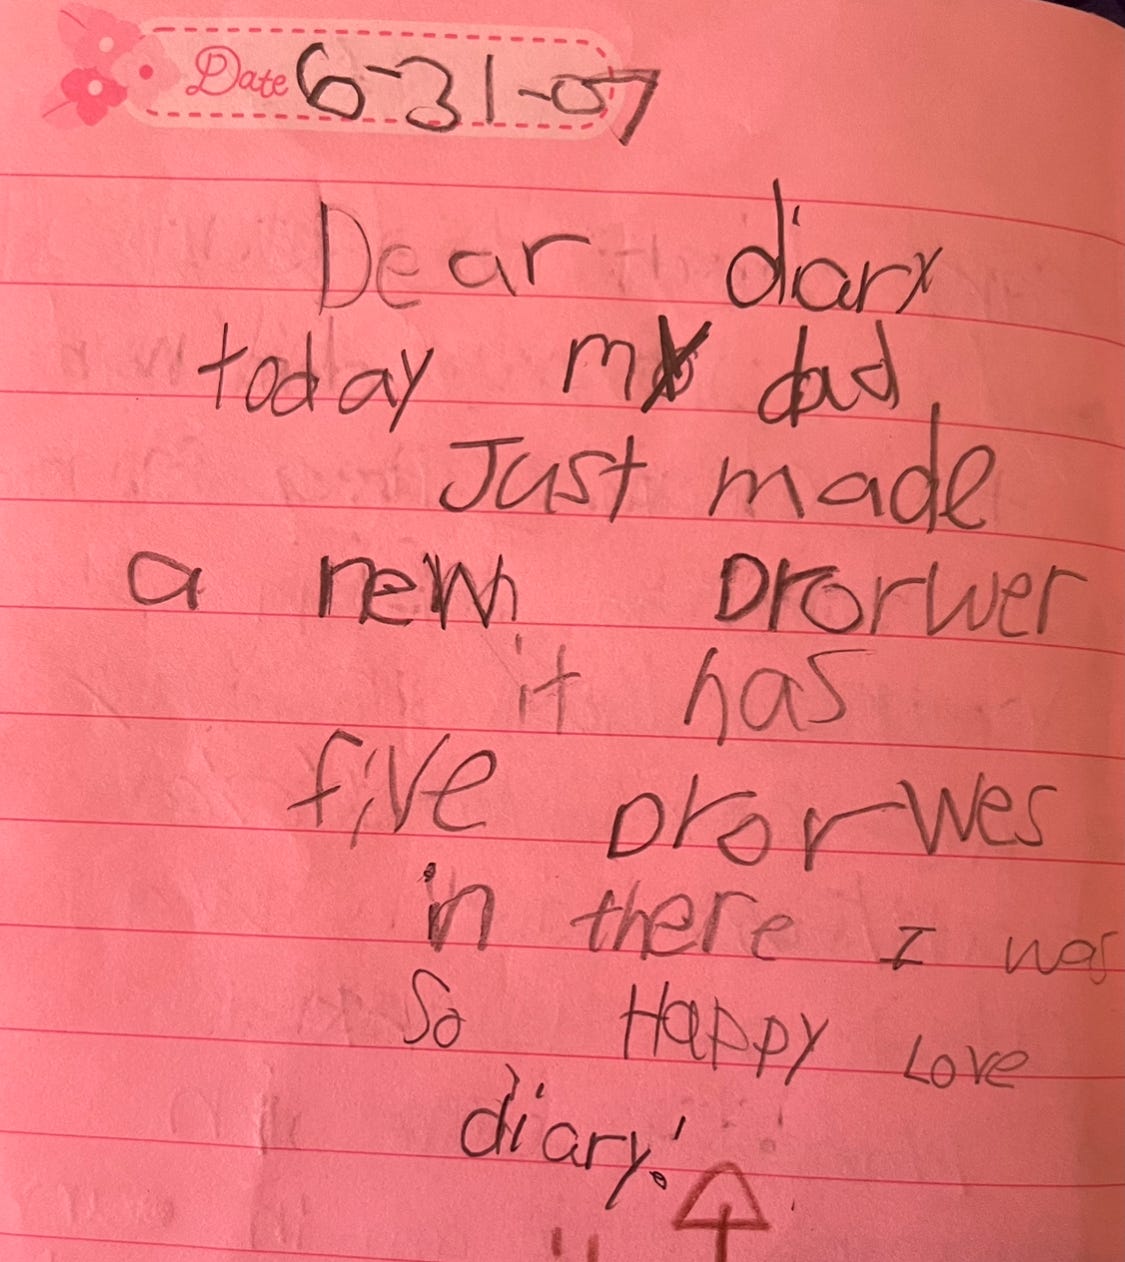 Date 6-31-07
Dear diary
today my dad
Just made
a new Drorwer
it has
five Drorwes
in there I was
So Happy Love
diary!